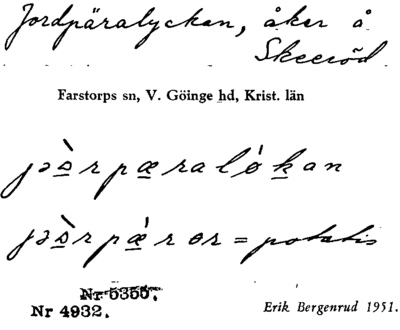 Jordpäralyckan, åker å
Skeeröd
Farstorps sn, V. Göinge hd, Krist. län
jɔ̀rpæralǿkan
jɔ̀rpæ̀rɵr = potatis
Nr 5355.
Nr 4932.
Erik Bergenrud 1951.